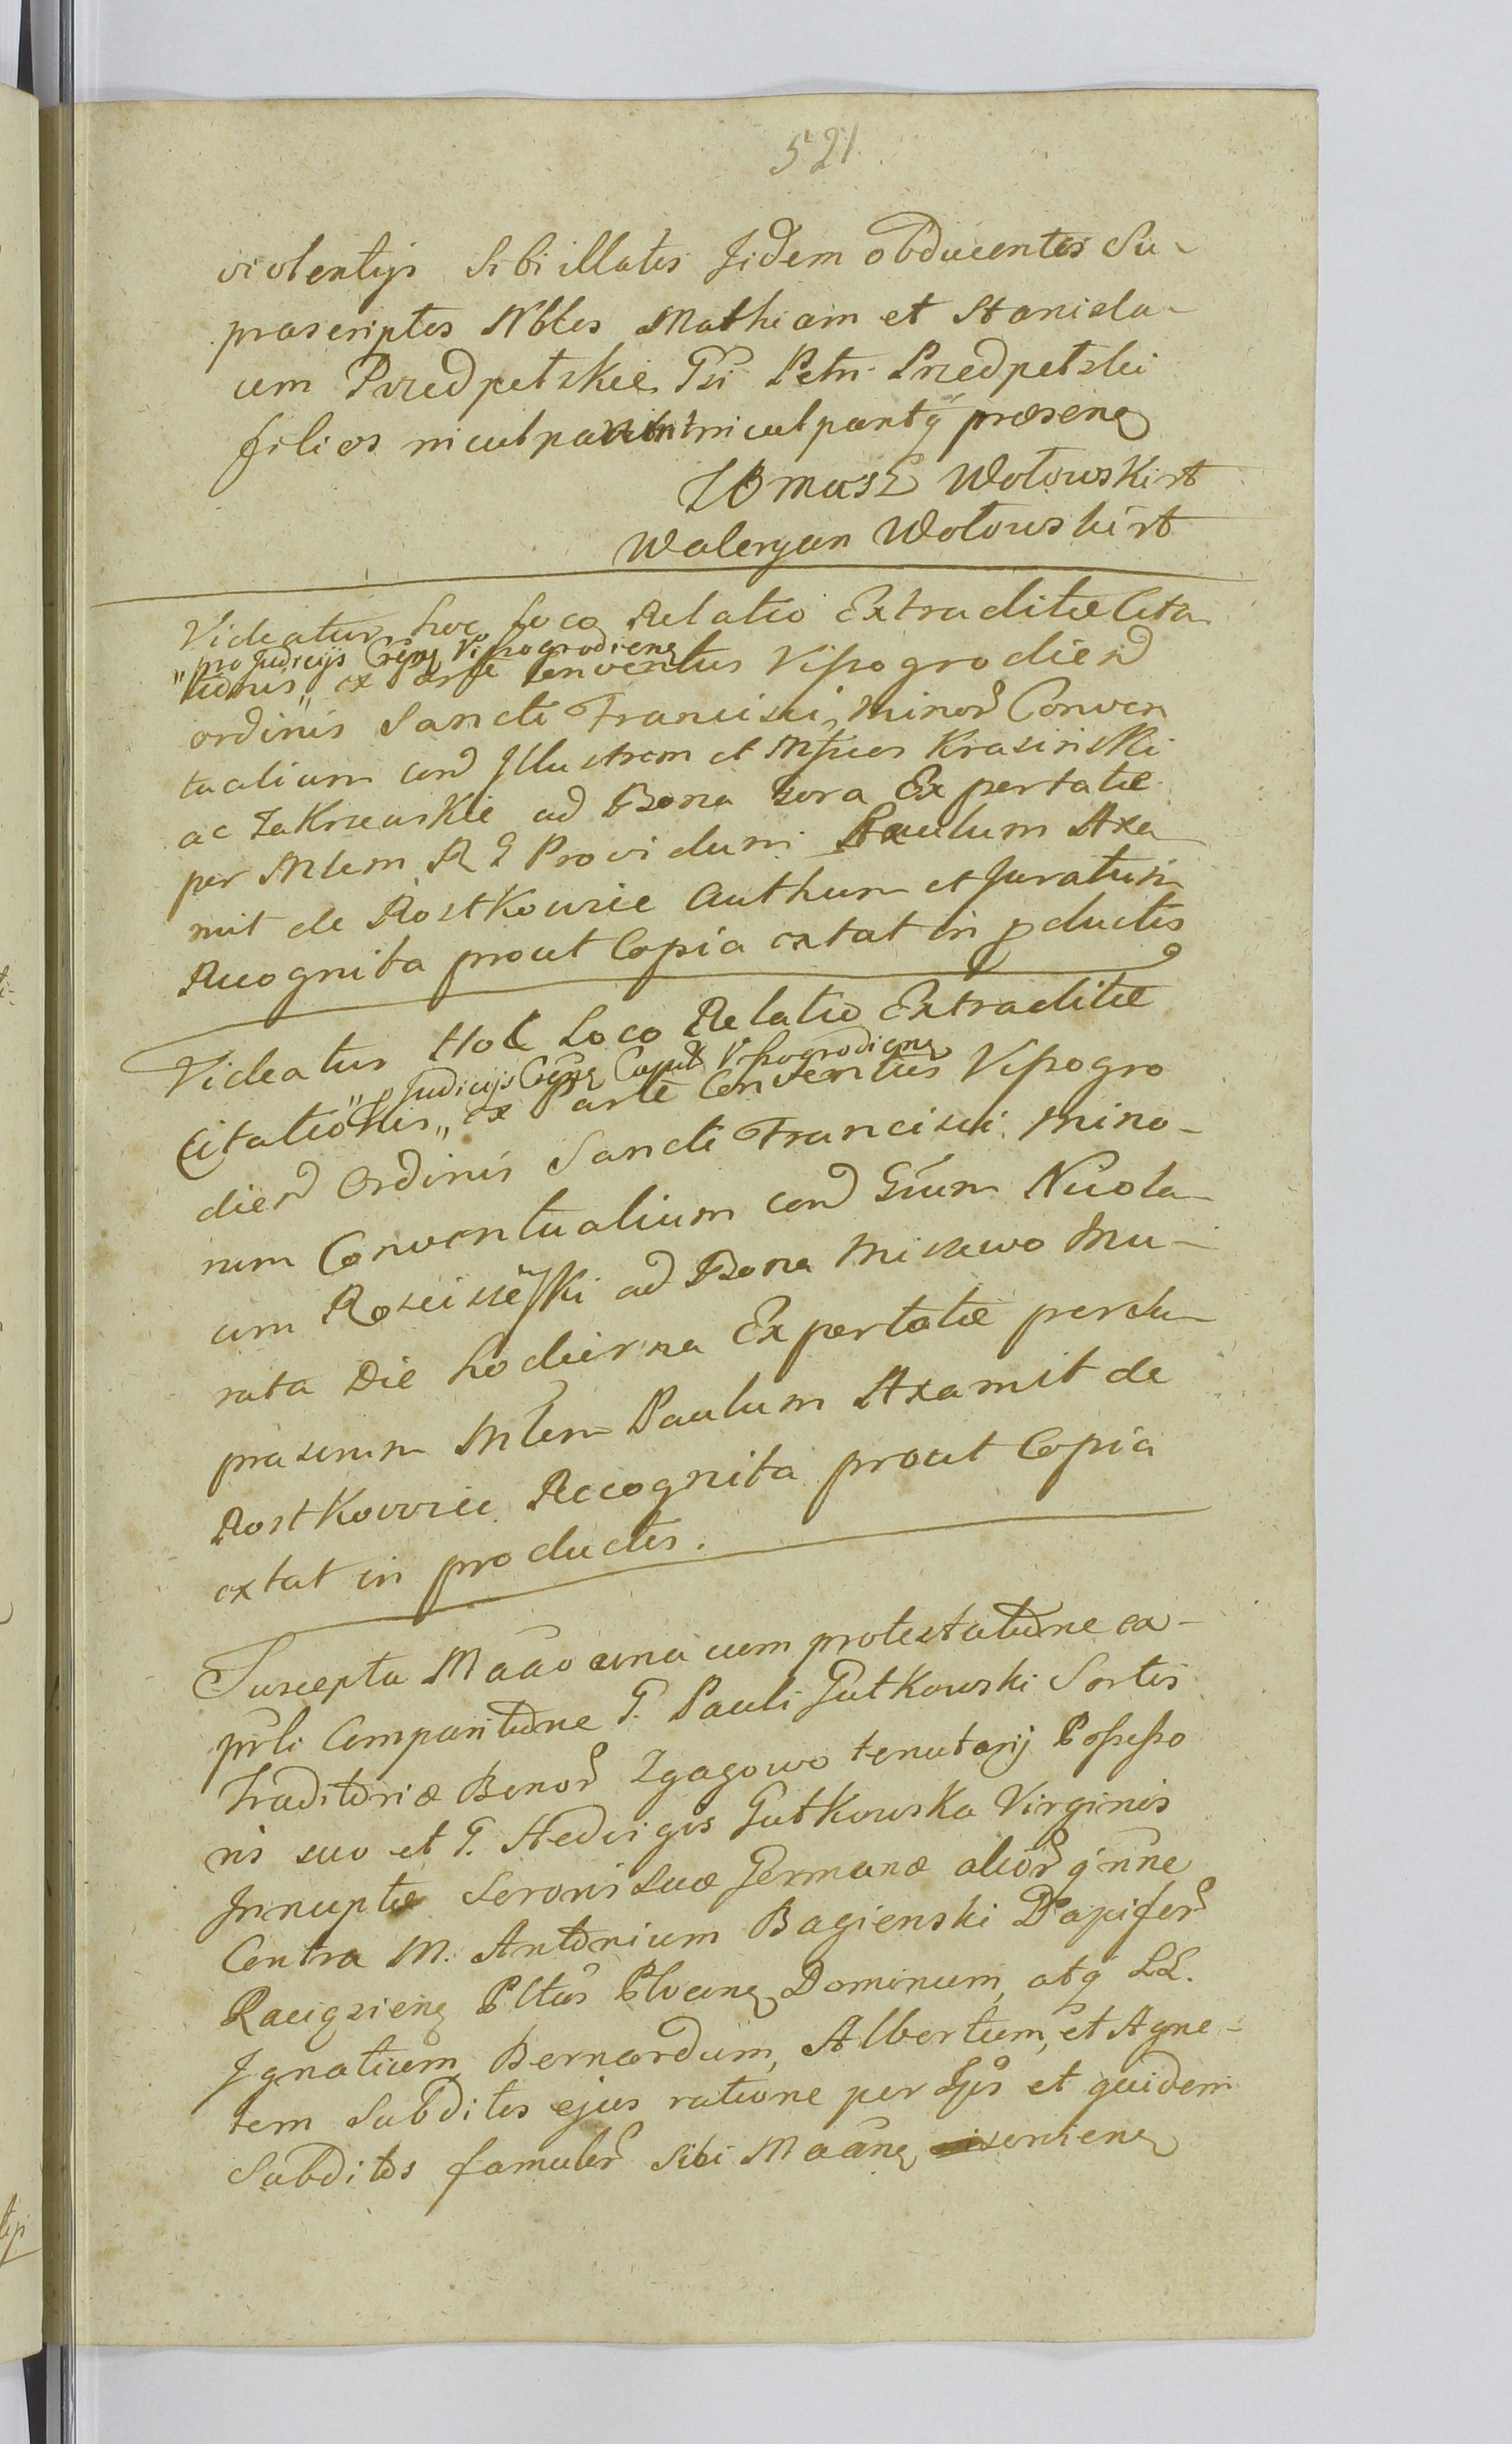 521
violentijs sibi illatis Jidem obducentes Su-
prascriptos Nbles Mathiam et Stanisla-
um Przedpetskie Gsi Petri Przedpetski
filios inculpant
Tomasz Wołowski rt
Waleryan Wołowski rt
Videatur hoc Loco Relatio Extraditae Cita
"pro Judicijs Visogrodien
tionis" ex arte Conventus Visogrodien
ordinis Sancti Francisci Minor Conven
tualium con Jllustrem et Mficos Krasinski
ac Zakrzewskie ad Bona Gora Expertatae
per Mlem R G Providum Paulum Axa
mit de Rostkowice Authum et Juratum
Recognita prout Copia extat in productis
Videatur Hoc Loco Relatio Extraditae
"p Judicijs Capit Visogrodien
Citationis" ex Parte Conventus Visogro
dien Ordinis Sancti Francisci Mino-
rum Conventualium con Gsum Nicola-
um Rosciszewski ad Bona Miszewo Mu-
rata Die hodierna Expertatae per su-
prascrum Mlem Paulum Axamit de
Rostkowice Recognita prout Copia
extat in productis.
Suscepta Maão una cum protestatione ex-
prli Comparitione G. Pauli Gutkowski Sortis
Traditoriæ Bonor Zgagowo tenutarij Possesso
ris suo et G. Hedvigis Gutkowska Virginis
Jnnuptæ Sororis suæ Germanæ alior
Contra M. Antonium Bagienski Dapifer
Raciązien Pltus Plocen Dominum, atq LL.
Jgnatium, Bernardum, Albertum, et Agne-
tem Subditos ejus ratione per Jps et quidem
Subditos famuler sibi